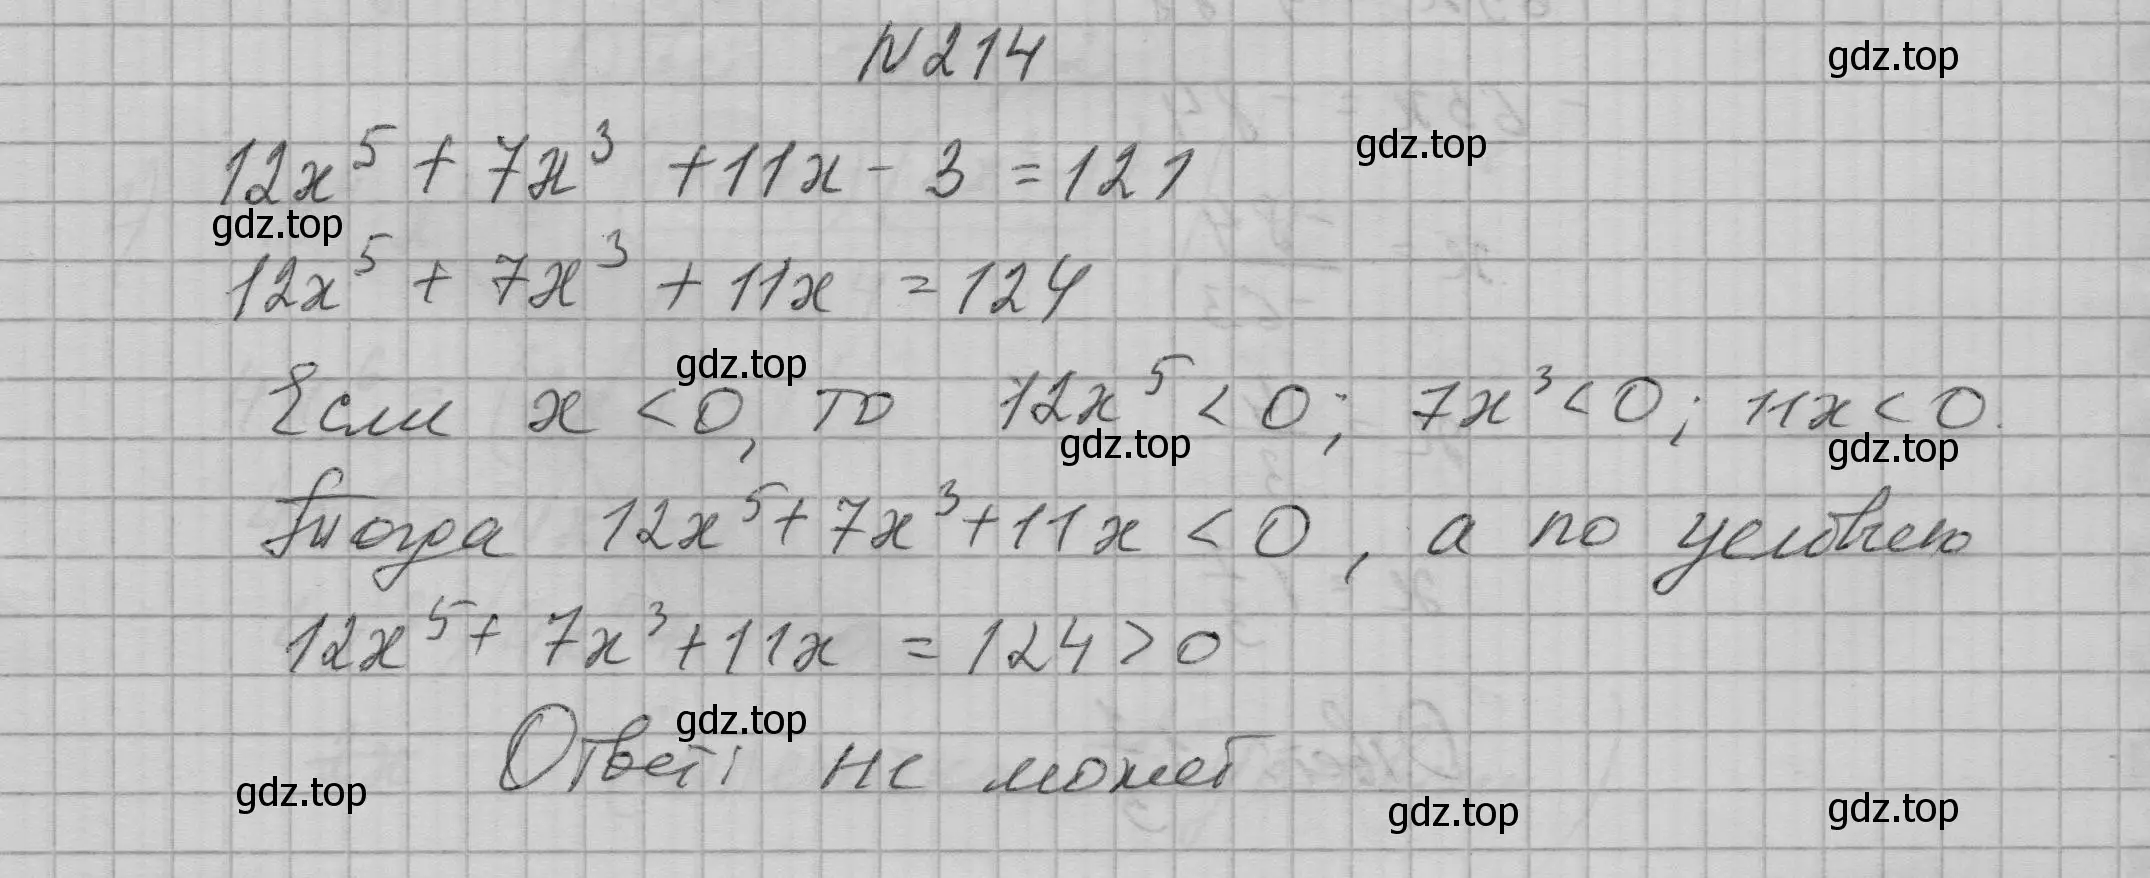 N 214
gdz.top
12x⁵ + 7x³ + 11x - 3 = 121
gdz.top
gdz.top
12x⁵ + 7x³ + 11x = 124
gdz.top
Если x < 0, то 12x⁵ < 0; 7x³ < 0; 11x < 0.
gdz.top
gdz.top
Тогда 12x⁵ + 7x³ + 11x < 0, а по условию
12x⁵ + 7x³ + 11x = 124 > 0
gdz.top
Ответ: не может
gdz.top
gdz.top
gdz.top